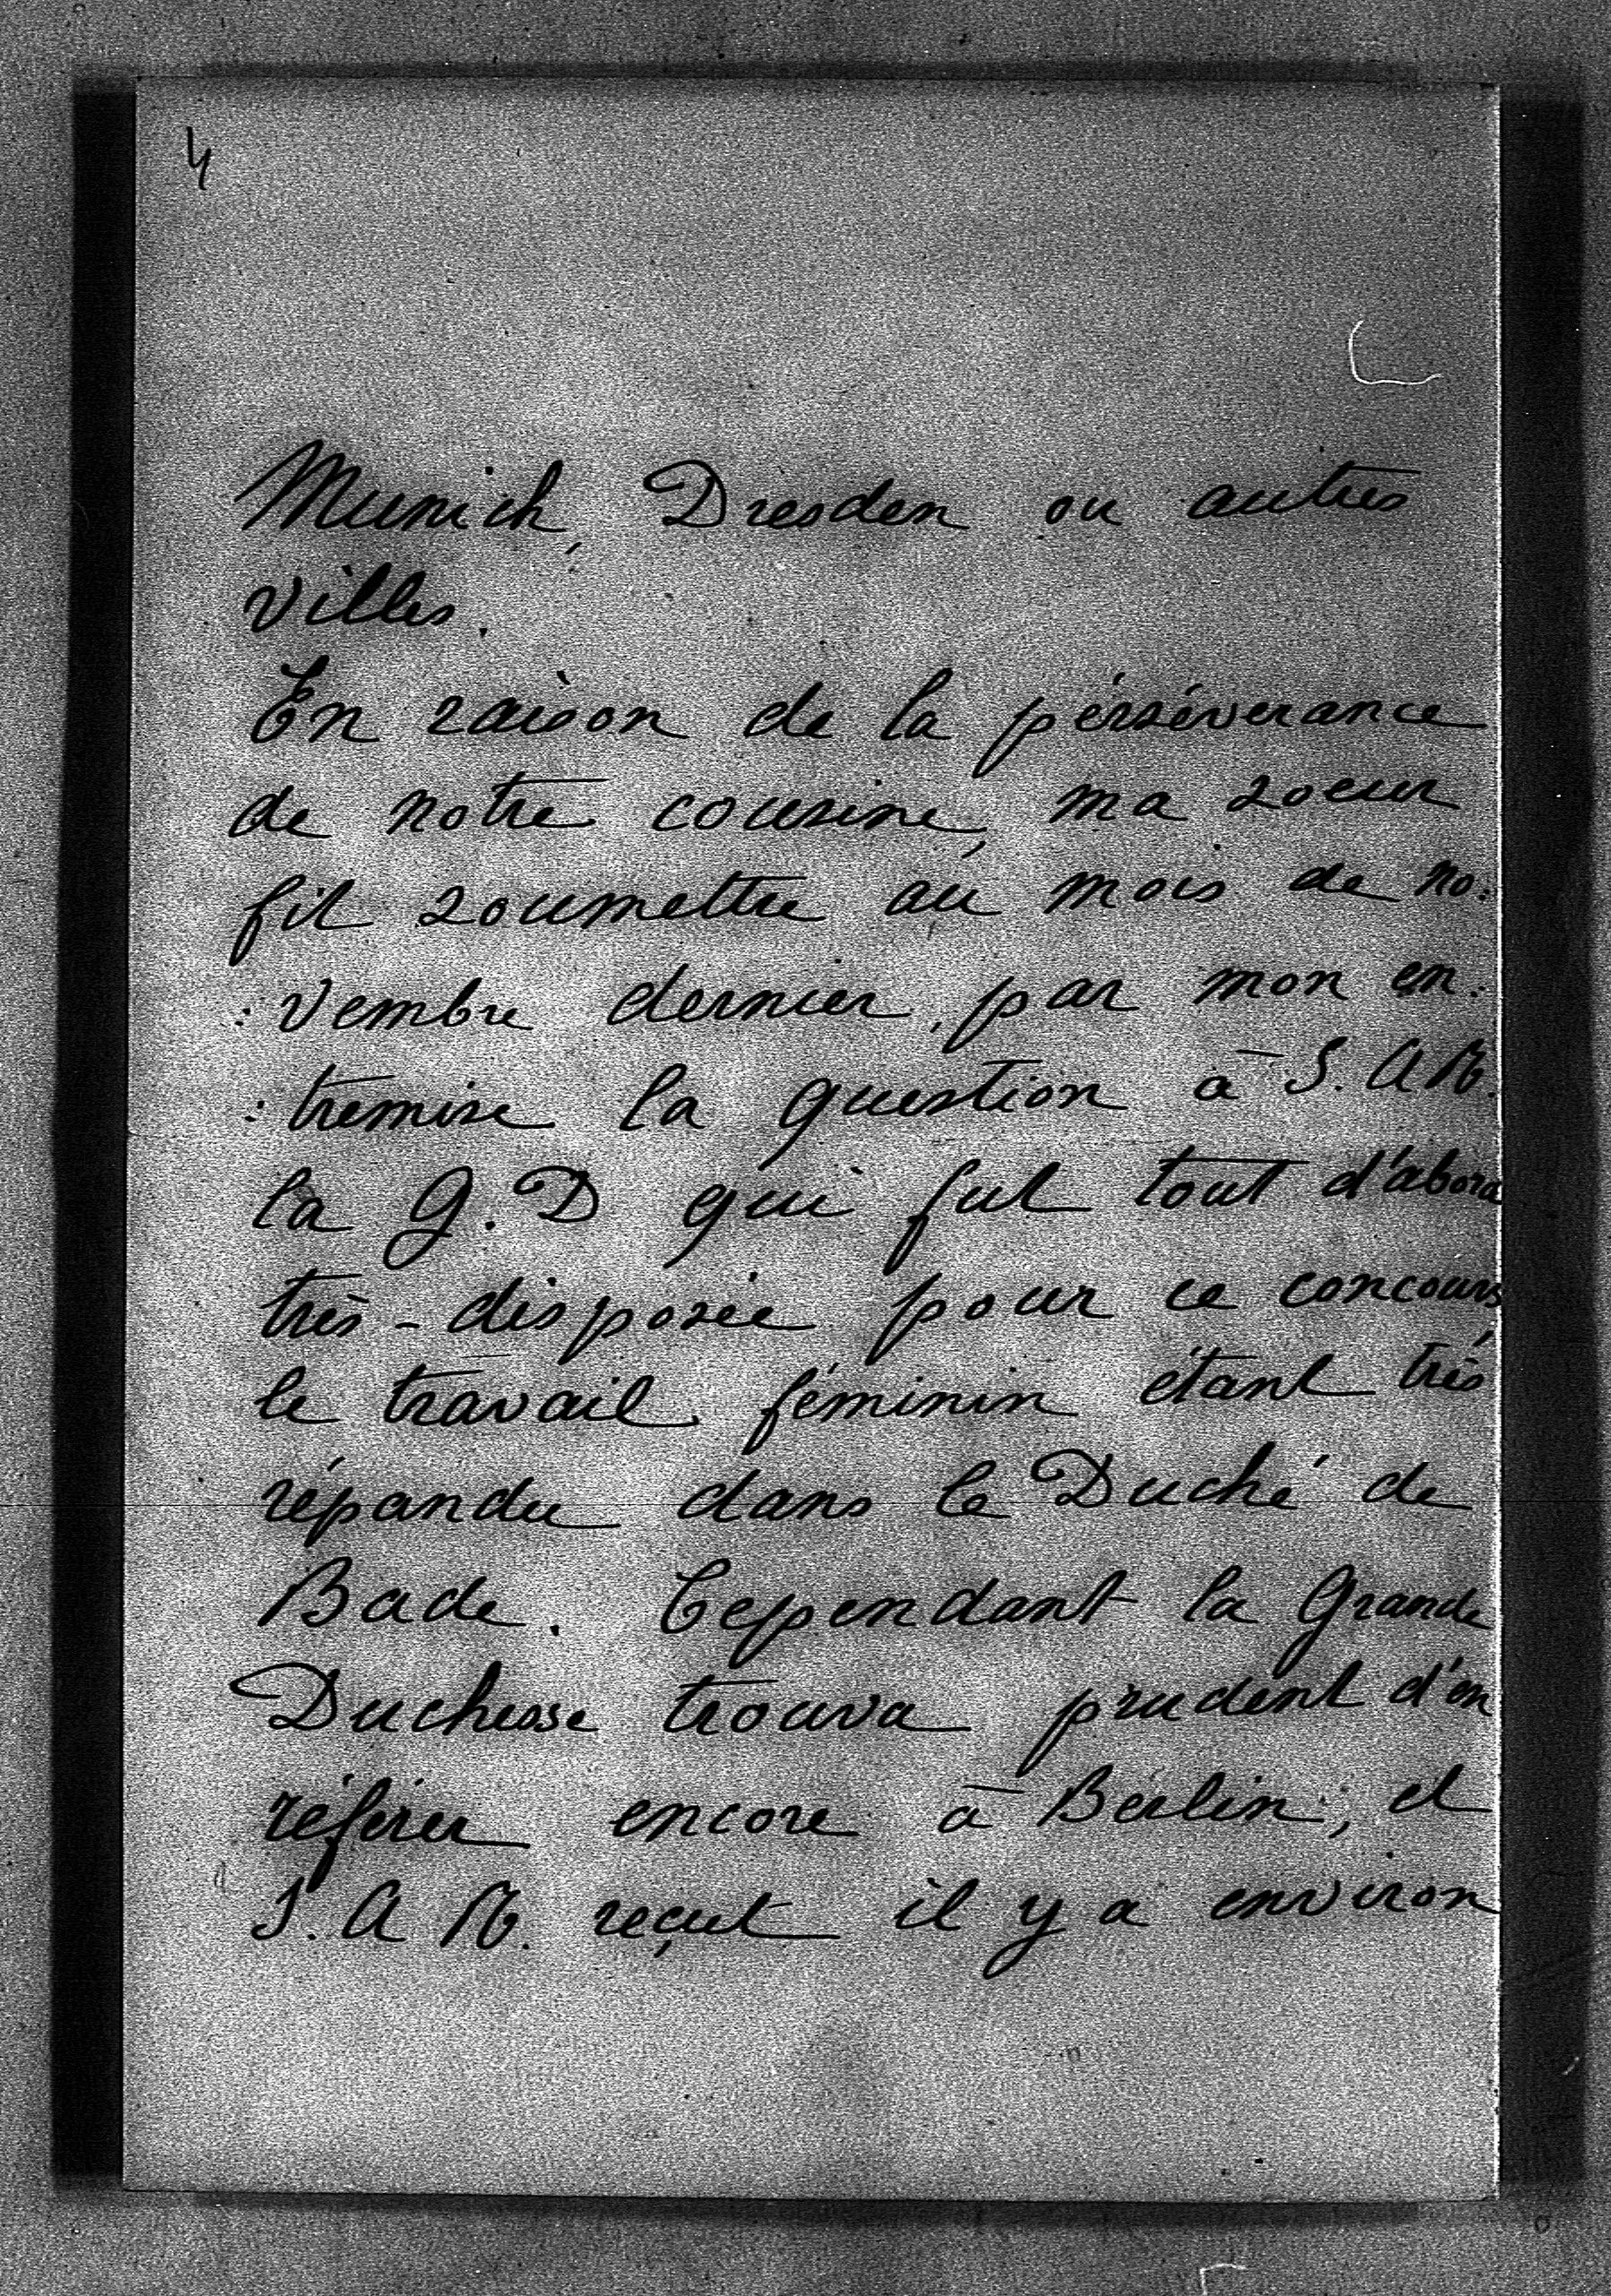 4
Munich, Dresden ou autres
villes.
En raison de la pérséverance
de notre cousine, ma soeur
fit soumettre au mois de no:
:vembre dernier, par mon en:
:tremise la question à S. A R.
la G. D qui fut tout d'abord
très-disposée pour ce concours,
le travail féminin étant très
répandu dans le Duché de
Bade. Cependant la Grande
Duchesse trouva prudent d'en
référer encore à Berlin; et
S. A R. reçut il y a environ